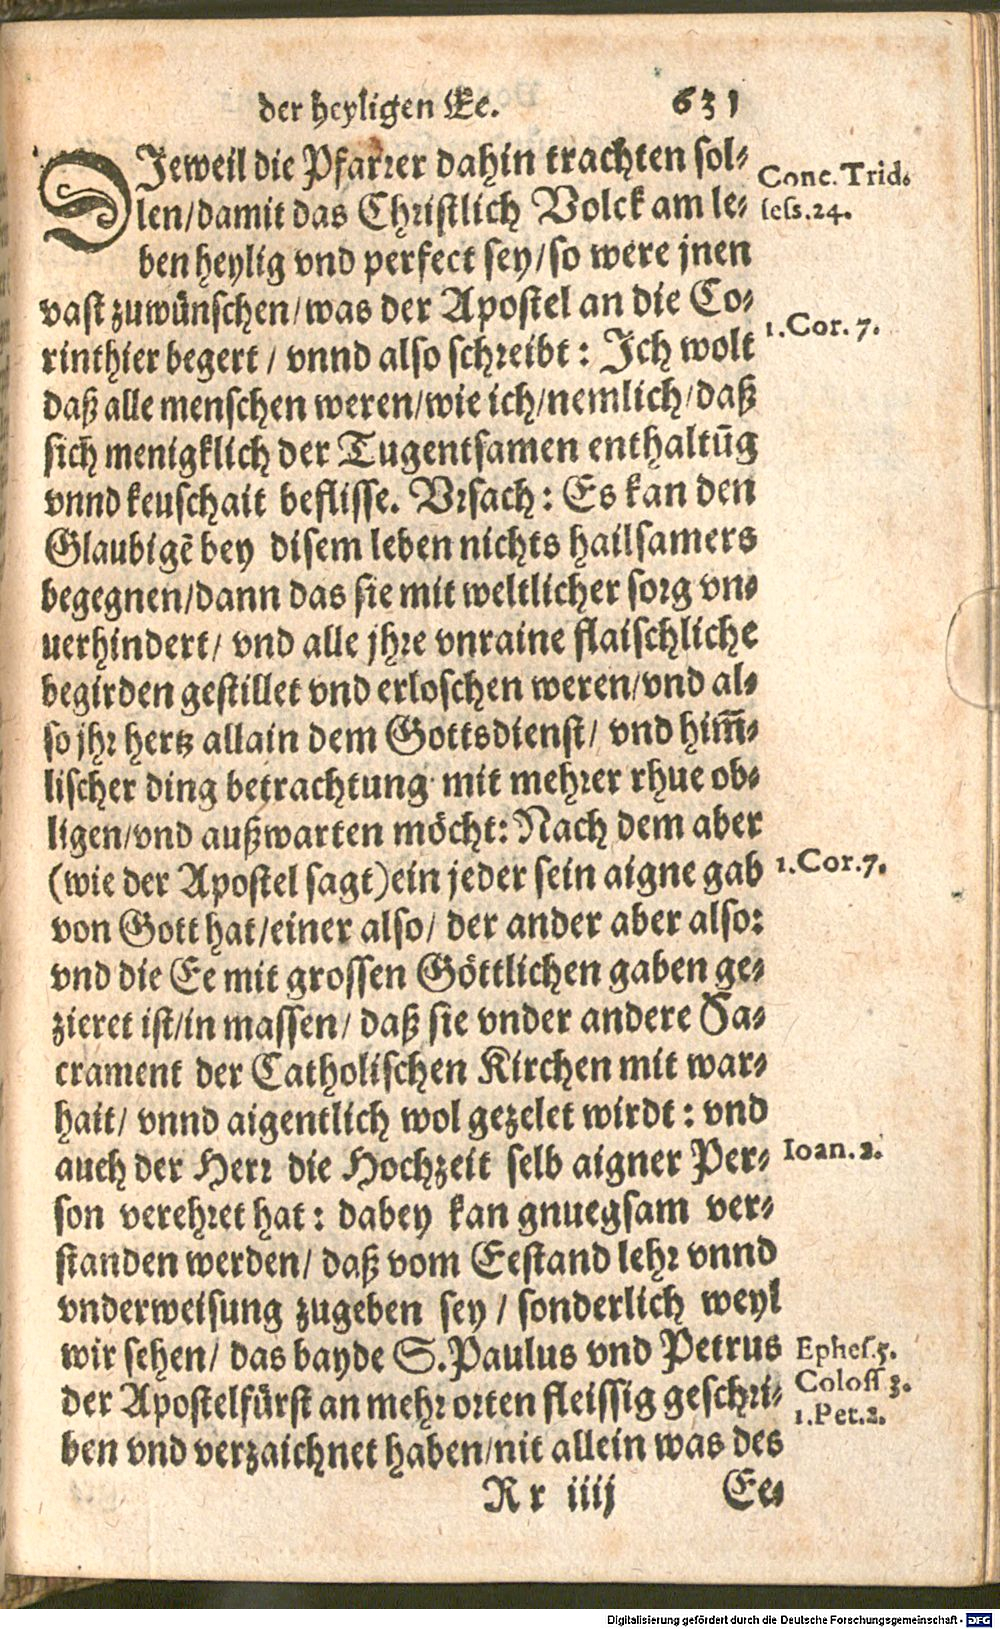 der heyligen Ee. 631
DJeweil die Pfarrer dahin trachten sol⸗
len/damit das Christlich Volck am le⸗
ben heylig vnd perfect sey/so were jnen
vast zuwünschen/was der Apostel an die Co⸗
rinthier begert / vnnd also schreibt : Ich wolt
daß alle menschen weren/wie ich/nemlich/daß
sich menigklich der Tugentsamen enthaltūg
vnnd keuschait beflisse. Vrsach : Es kan den
Glaubigē bey disem leben nichts hailsamers
begegnen/dann das sie mit weltlicher sorg vn⸗
uerhindert/ vnd alle jhre vnraine flaischliche
begirden gestillet vnd erloschen weren/vnd al⸗
so jhr hertz allain dem Gottsdienst/ vnd him̅⸗
lischer ding betrachtung mit mehrer rhue ob⸗
ligen/vnd außwarten möcht: Nach dem aber
(wie der Apostel sagt)ein jeder sein aigne gab
von Gott hat/einer also/ der ander aber also:
vnd die Ee mit grossen Göttlichen gaben ge⸗
zieret ist/in massen/ daß sie vnder andere Sa⸗
crament der Catholischen Kirchen mit war⸗
hait/ vnnd aigentlich wol gezelet wirdt : vnd
auch der Herr die Hochzeit selb aigner Per⸗
son verehret hat : dabey kan gnuegsam ver⸗
standen werden/ daß vom Eestand lehr vnnd
vnderweisung zugeben sey / sonderlich weyl
wir sehen/ das bayde S.Paulus vnd Petrus
der Apostelfürst an mehr orten fleissig geschri⸗
ben vnd verzaichnet haben/nit allein was des
Rr iiij Ee⸗
Conc. Trid.
sess.24.
1.Cor. 7.
1.Cor.7.
Ioan.2.
Ephes.5.
Coloss 3.
1.Pet.2.
Digitalisierung gefördert durch die Deutsche Forschungsgemeinschaft - DFG